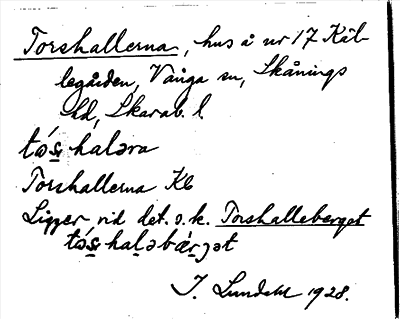 Torshallerna, hus å nr 17 Käl-
legården, Vånga sn, Skånings
hd, Skarab. l
tó̱s̱ halǝra
Torshallerna Kb
Ligger vid det s.k. Torshalleberget
tó̱s̱ haḻǝbæ̀ṟjǝt
I. Lundahl 1928.